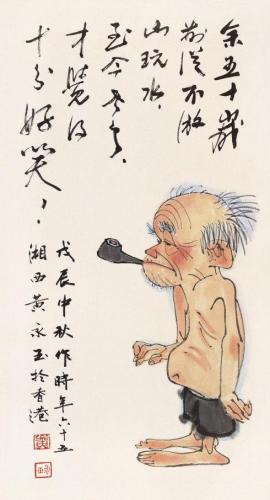 余五十歲
前從不游
山玩水，
至今老了，
才覺得
十分好笑！
戊辰中秋作時年六十五
湘西黃永玉於香港